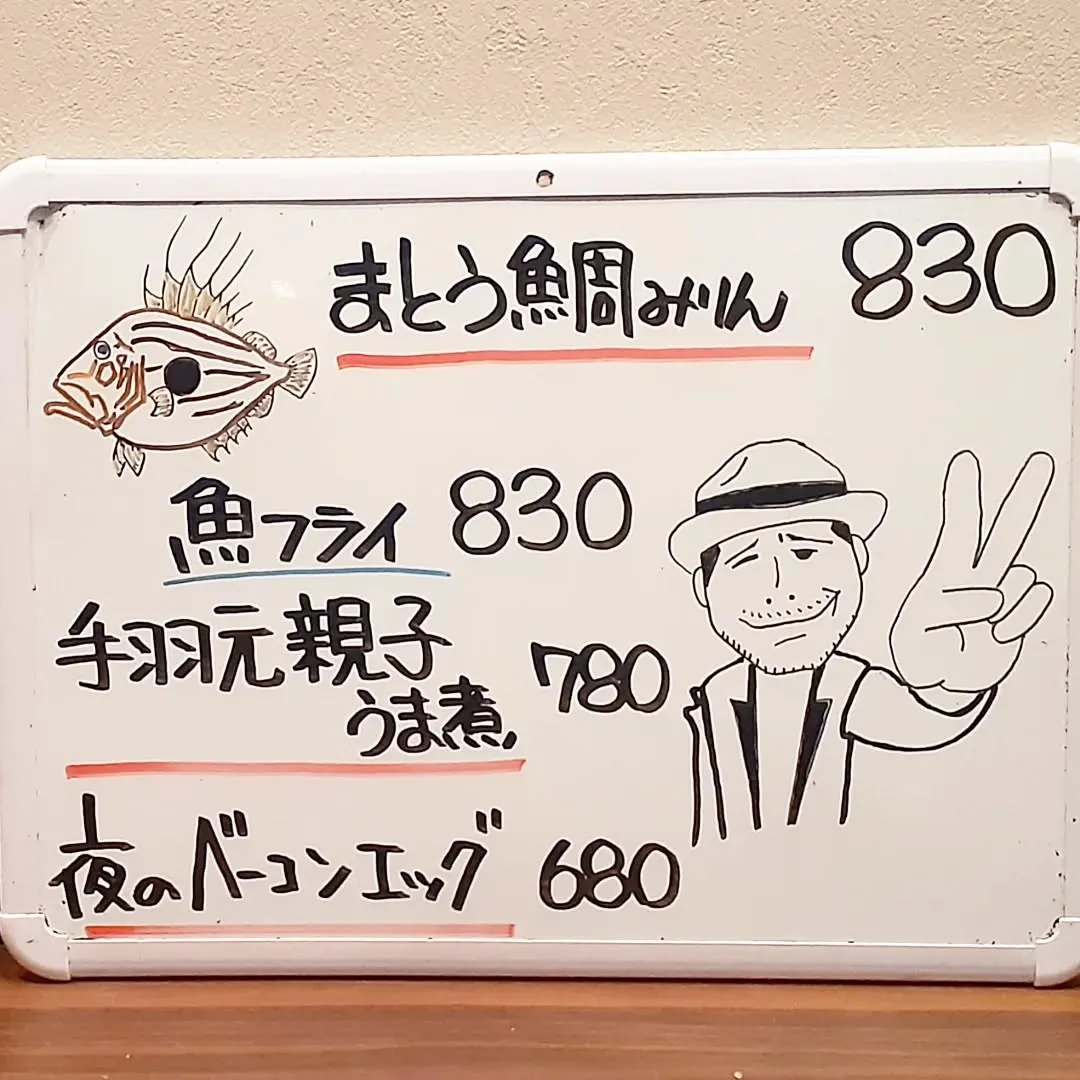 まとう鯛みりん 830
魚フライ 830
手羽元親子
うま煮 780
夜のベーコンエッグ 680